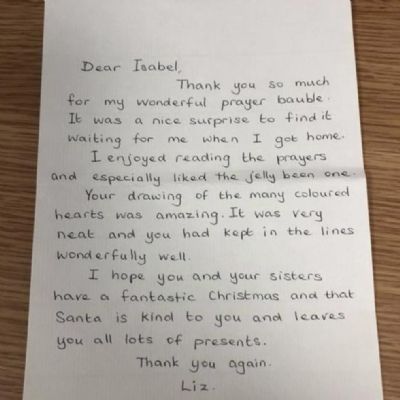 Dear Isabel,
Thank you so much
for my wonderful prayer bauble.
It was a nice surprise to find it
waiting for me when I got home.
I enjoyed reading the prayers
and especially liked the jelly been one.
Your drawing of the many coloured
hearts was amazing. It was very
neat and you had kept in the lines
wonderfully well.
I hope you and your sisters
have a fantastic Christmas and that
Santa is kind to you and leaves
you all lots of presents.
Thank you again.
Liz.